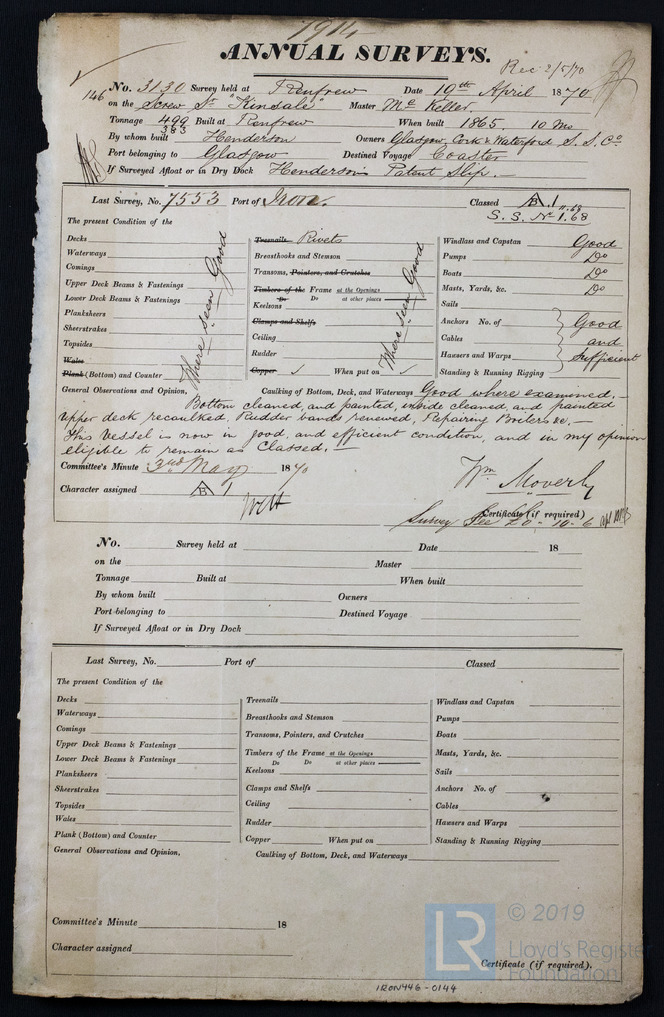 1914
ANNUAL SURVEYS.
Rec 2/5/70
146 No. 3130 Survey held at Renfrew Date 19th April 1870
on the Screw Sr "Kinsale" Master Mc Keller.
Tonnage 499 383 Built at Renfrew When built 1865. 10 Mo
By whom built Henderson Owners Glasgow, Cork & Waterford S. S. Co
Port belonging to Glasgow Destined Voyage Coaster
If Surveyed Afloat or in Dry Dock Henderson's Patent Slip.—
Last Survey, No. 7553 Port of Iron. Classed A 1 11.68
S. S. No 1. 68
The present Condition of the
Decks
Waterways
Comings
Upper Deck Beams & Fastenings
Lower Deck Beams & Fastenings
Planksheers
Sheerstrakes
Topsides
Wales
Plank (Bottom) and Counter
Where seen Good
Treenails Rivets
Breasthooks and Stemson
Transoms, Pointers, and Crutches
Timbers of the Frame at the Openings
Do Do at other places
Keelsons
Clamps and Shelfs
Ceiling
Rudder
Copper ✓ When put on ✓
Where seen Good
Windlass and Capstan Good
Pumps Do
Boats Do
Masts, Yards, &c. Do
Sails
Anchors No. of
Cables
Hawsers and Warps
Standing & Running Rigging
Good
and
Sufficient
General Observations and Opinion, Caulking of Bottom, Deck, and Waterways Good where examined.—
Bottom cleaned, and painted, inside cleaned, and painted
upper deck recaulked, Rudder bands renewed, Repairing Boilers &c.—
This Vessel is now in good, and efficient condition, and in my opinion
eligible to remain as Classed.—
Committee's Minute 3rd May 1870
Character assigned A 1
Wm Moverly
Certificate (if required)
Survey Fee £0-10-6
No. Survey held at Date 18
on the Master
Tonnage Built at When built
By whom built Owners
Port belonging to Destined Voyage
If Surveyed Afloat or in Dry Dock
Last Survey, No. Port of Classed
The present Condition of the
Decks
Waterways
Comings
Upper Deck Beams & Fastenings
Lower Deck Beams & Fastenings
Planksheers
Sheerstrakes
Topsides
Wales
Plank (Bottom) and Counter
Treenails
Breasthooks and Stemson
Transoms, Pointers, and Crutches
Timbers of the Frame at the Openings
Do Do at other places
Keelsons
Clamps and Shelfs
Ceiling
Rudder
Copper When put on
Windlass and Capstan
Pumps
Boats
Masts, Yards, &c.
Sails
Anchors No. of
Cables
Hawsers and Warps
Standing & Running Rigging
General Observations and Opinion, Caulking of Bottom, Deck, and Waterways
Committee's Minute 18
Character assigned
Certificate (if required).
LR © 2019
Lloyd's Register
Foundation
IRON446-0144